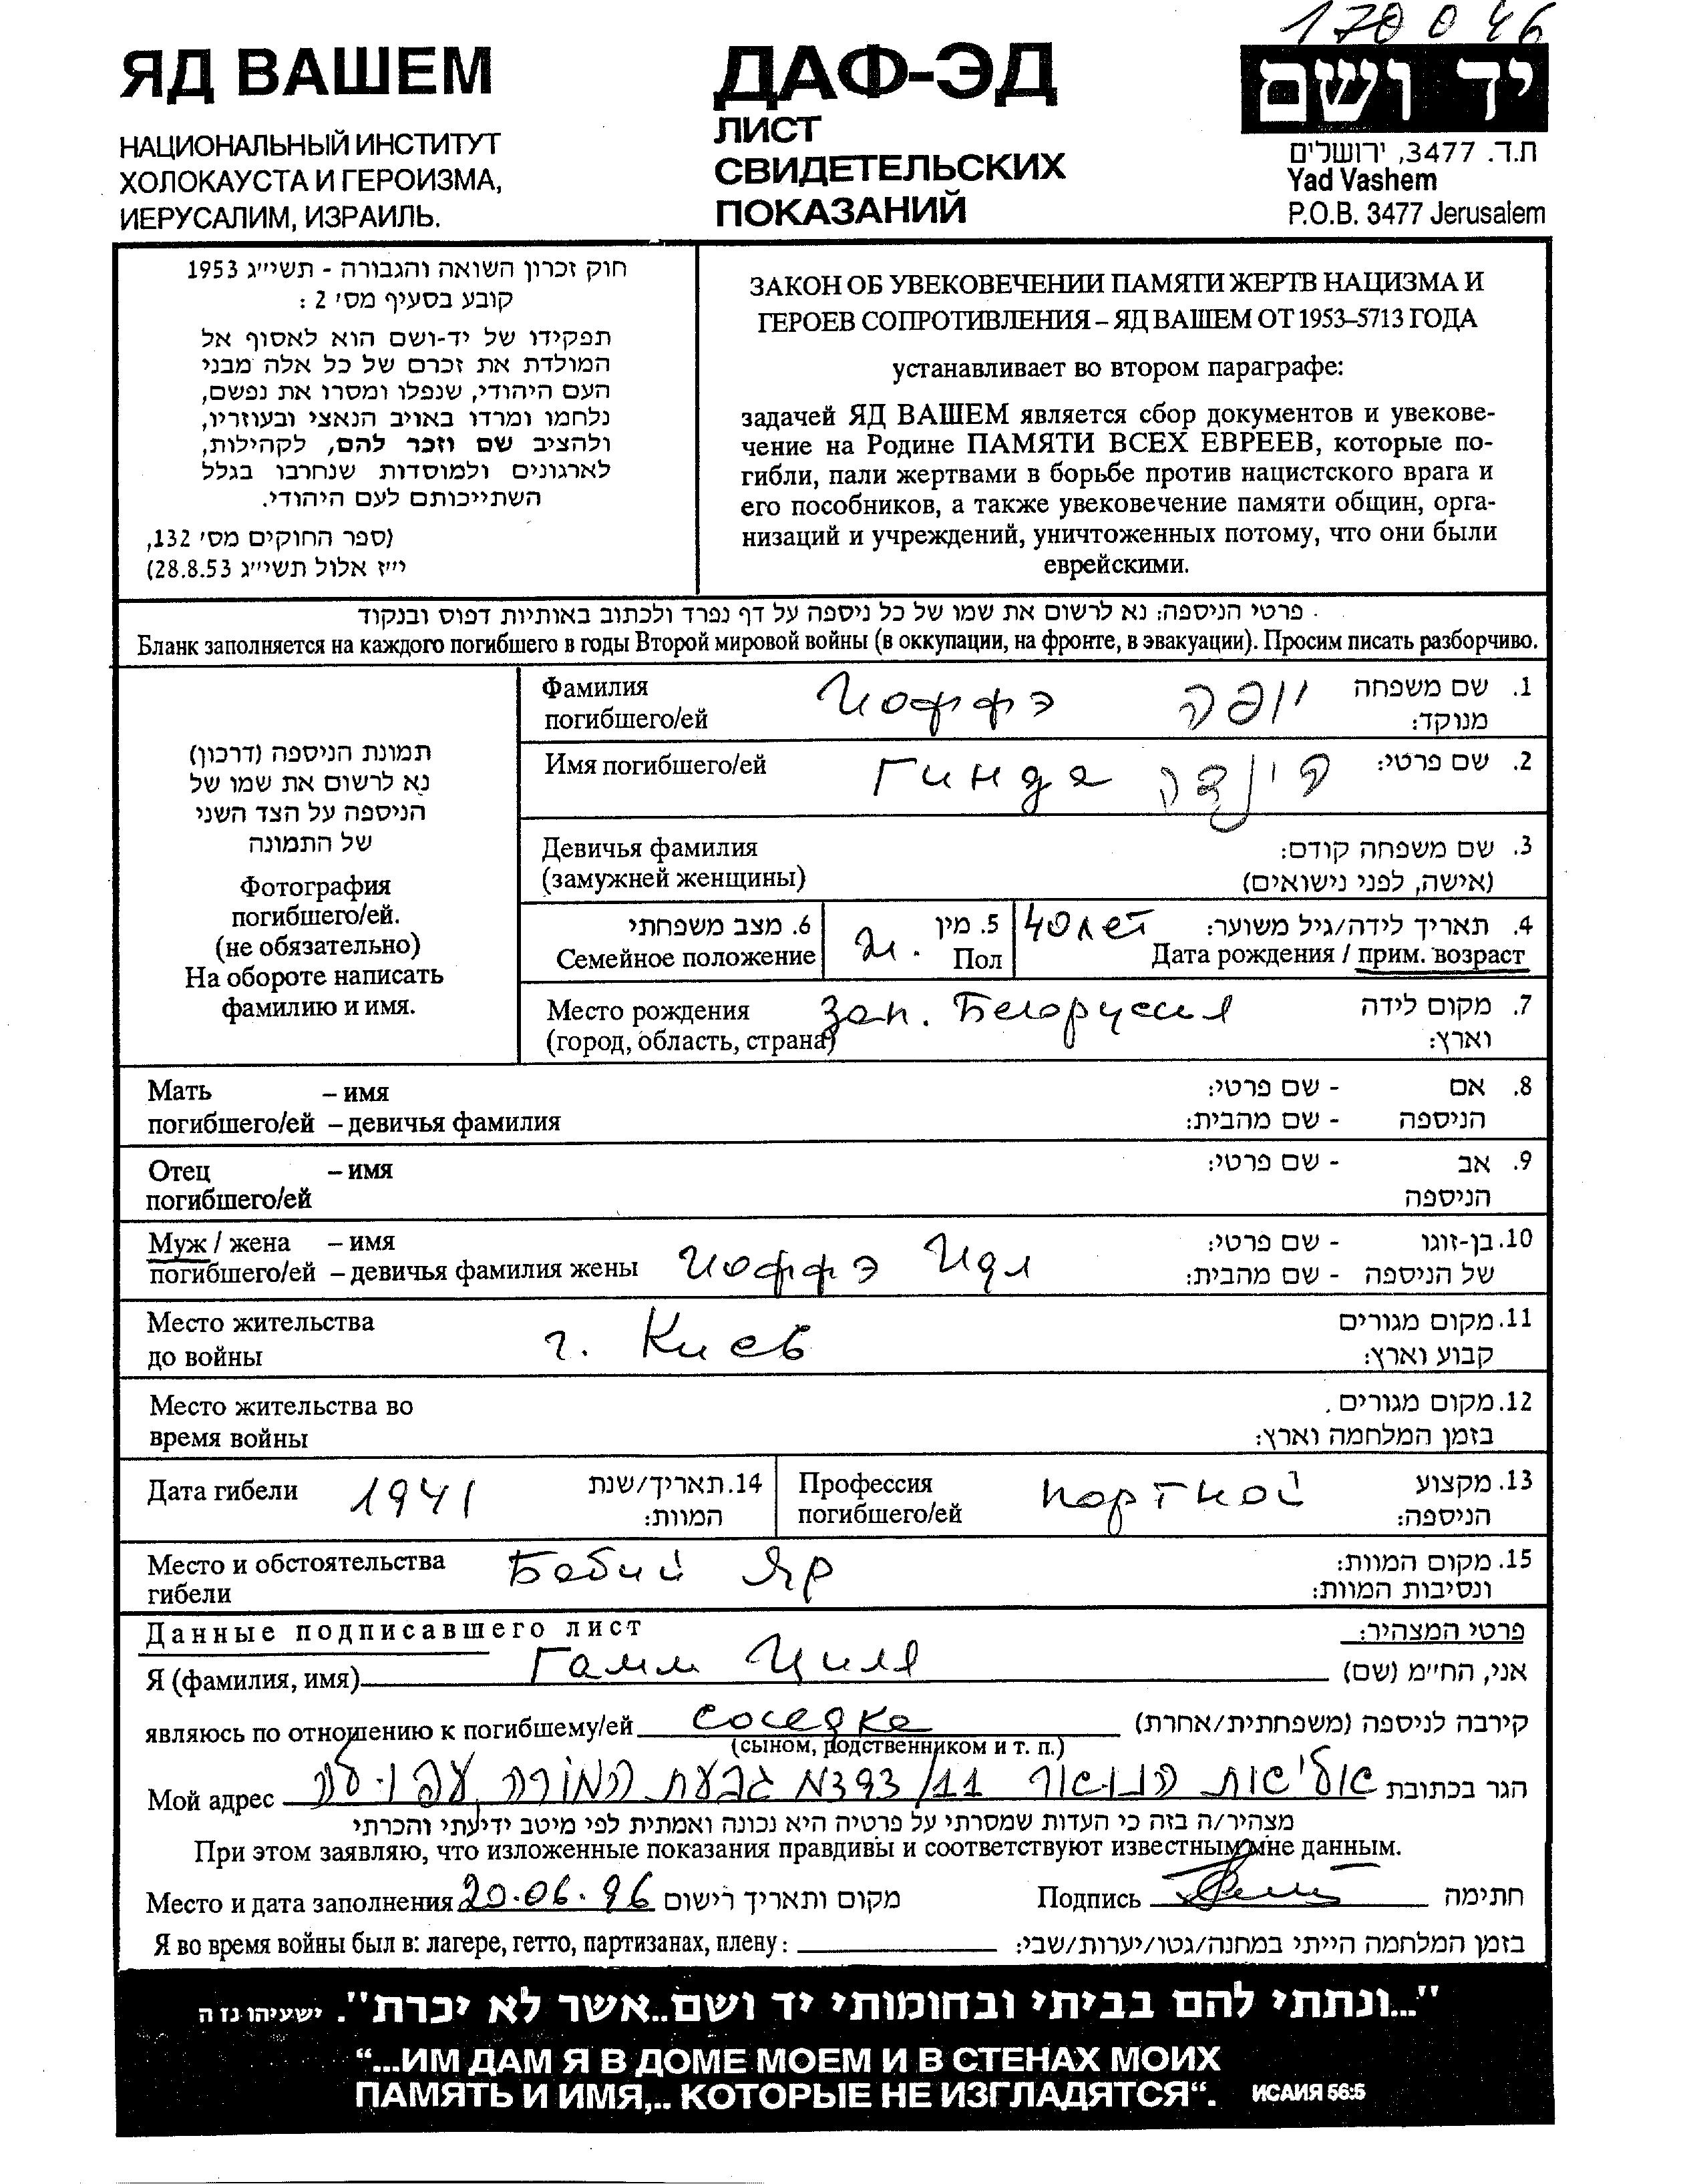 170046
ЯД ВАШЕМ
НАЦИОНАЛЬНЫЙ ИНСТИТУТ
ХОЛОКАУСТА И ГЕРОИЗМА,
ИЕРУСАЛИМ, ИЗРАИЛЬ.
ДАФ-ЭД
ЛИСТ
СВИДЕТЕЛЬСКИХ
ПОКАЗАНИЙ
יד ושם
ת.ד. 3477, ירושלים
Yad Vashem
P.O.B. 3477 Jerusalem
חוק זכרון השואה והגבורה - תשי״ג 1953
קובע בסעיף מס׳ 2 :
תפקידו של יד-ושם הוא לאסוף אל
המולדת את זכרם של כל אלה מבני
העם היהודי, שנפלו ומסרו את נפשם,
נלחמו ומרדו באויב הנאצי ובעוזריו,
ולהציב שם וזכר להם, לקהילות,
לארגונים ולמוסדות שנחרבו בגלל
השתייכותם לעם היהודי.
(ספר החוקים מס׳ 132,
י״ז אלול תשי״ג 28.8.53)
ЗАКОН ОБ УВЕКОВЕЧЕНИИ ПАМЯТИ ЖЕРТВ НАЦИЗМА И
ГЕРОЕВ СОПРОТИВЛЕНИЯ – ЯД ВАШЕМ ОТ 1953–5713 ГОДА
устанавливает во втором параграфе:
задачей ЯД ВАШЕМ является сбор документов и увекове-
чение на Родине ПАМЯТИ ВСЕХ ЕВРЕЕВ, которые по-
гибли, пали жертвами в борьбе против нацистского врага и
его пособников, а также увековечение памяти общин, орга-
низаций и учреждений, уничтоженных потому, что они были
еврейскими.
פרטי הניספה: נא לרשום את שמו של כל ניספה על דף נפרד ולכתוב באותיות דפוס ובנקוד
Бланк заполняется на каждого погибшего в годы Второй мировой войны (в оккупации, на фронте, в эвакуации). Просим писать разборчиво.
תמונת הניספה (דרכון)
נא לרשום את שמו של
הניספה על הצד השני
של התמונה
Фотография
погибшего/ей.
(не обязательно)
На обороте написать
фамилию и имя.
Фамилия Иоффэ יופה 1. שם משפחה
погибшего/ей מנוקד:
Имя погибшего/ей Гинда הינדה 2. שם פרטי:
Девичья фамилия 3. שם משפחה קודם:
(замужней женщины) (אישה, לפני נישואים)
6. מצב משפחתי 5. מין 40 лет 4. תאריך לידה/גיל משוער:
Семейное положение м. Пол Дата рождения / прим. возраст
Место рождения Зап. Белоруссия 7. מקום לידה
(город, область, страна) וארץ:
Мать – имя 8. אם - שם פרטי:
погибшего/ей – девичья фамилия הניספה - שם מהבית:
Отец – имя 9. אב - שם פרטי:
погибшего/ей הניספה
Муж / жена – имя 10. בן-זוגו - שם פרטי:
погибшего/ей – девичья фамилия жены Иоффэ Идл של הניספה - שם מהבית:
Место жительства г. Киев 11. מקום מגורים
до войны קבוע וארץ:
Место жительства во 12. מקום מגורים
время войны בזמן המלחמה וארץ:
Дата гибели 1941 14. תאריך/שנת המוות:
Профессия портной 13. מקצוע
погибшего/ей הניספה:
Место и обстоятельства Бабий Яр 15. מקום המוות:
гибели ונסיבות המוות:
Данные подписавшего лист פרטי המצהיר:
Я (фамилия, имя) Гамм Циля אני, הח״מ (שם)
являюсь по отношению к погибшему/ей соседка קירבה לניספה (משפחתית/אחרת)
(сыном, родственником и т. п.)
Мой адрес N393/11 גבעת המורה עפולה הגר בכתובת
מצהיר/ה בזה כי העדות שמסרתי על פרטיה היא נכונה ואמתית לפי מיטב ידיעתי והכרתי
При этом заявляю, что изложенные показания правдивы и соответствуют известным мне данным.
Место и дата заполнения 20.06.96 מקום ותאריך רישום Подпись חתימה
Я во время войны был в: лагере, гетто, партизанах, плену : בזמן המלחמה הייתי במחנה/גטו/יערות/שבי:
"...ונתתי להם בביתי ובחומותי יד ושם..אשר לא יכרת". ישעיהו נז ה
“...ИМ ДАМ Я В ДОМЕ МОЕМ И В СТЕНАХ МОИХ
ПАМЯТЬ И ИМЯ,.. КОТОРЫЕ НЕ ИЗГЛАДЯТСЯ“. ИСАИЯ 56:5